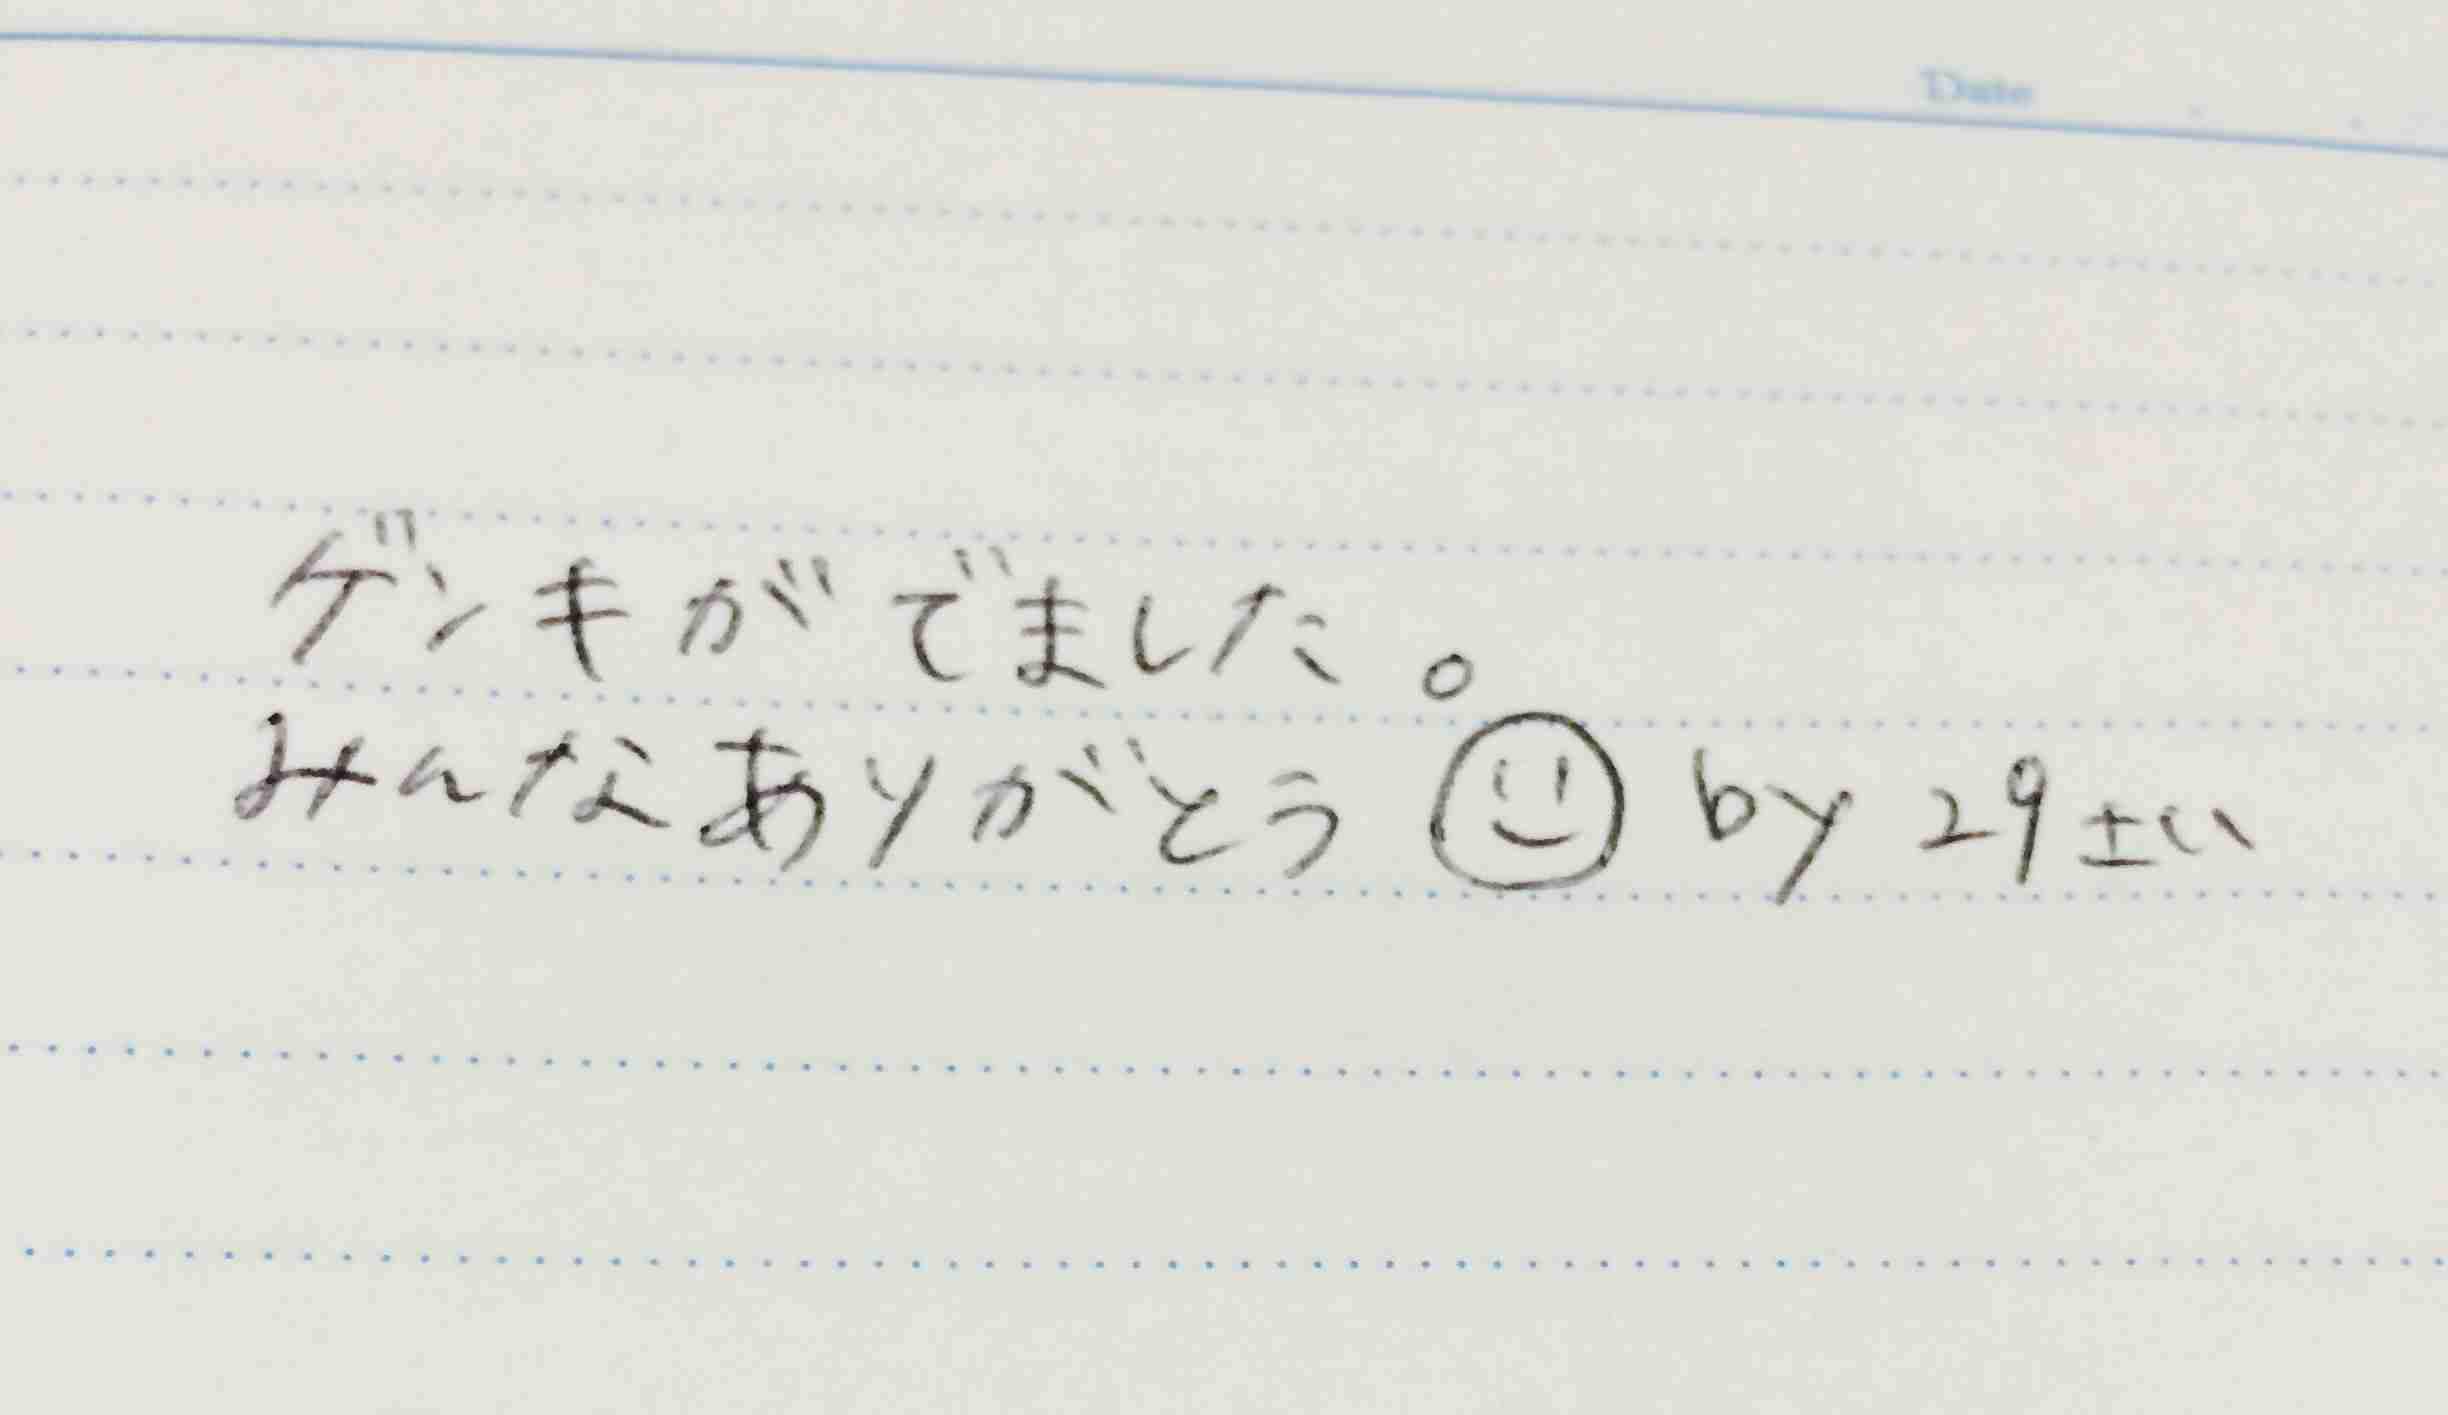 Date
ゲンキがでました。
みんなありがとう☺ by 29さい